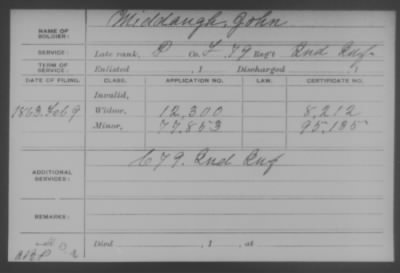 NAME OF SOLDIER: Middaugh, John
SERVICE: Late rank, P Co. F, 79 Reg't 2nd Inf.
TERM OF SERVICE: Enlisted , 1 Discharged , 1
DATE OF FILING. CLASS. APPLICATION NO. LAW. CERTIFICATE NO.
Invalid,
1863. Feb 9 Widow, 12,300 8,212
Minor, 77,853 95,135
ADDITIONAL SERVICES: C 79. Ind Inf
REMARKS:
Died , 1 , at